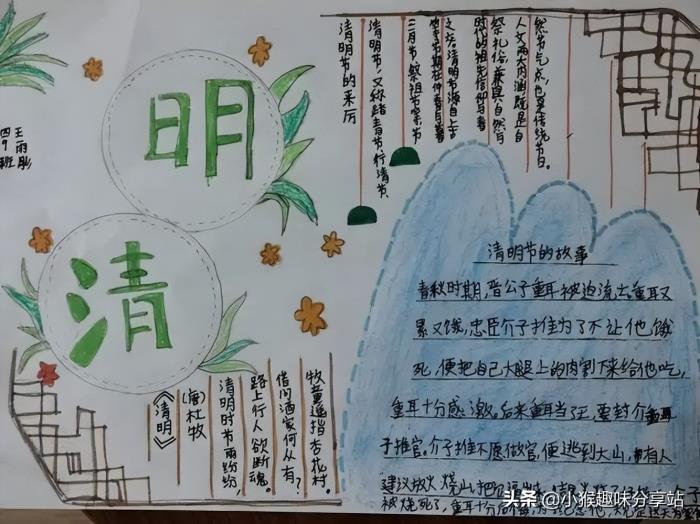 清明
四9班
王雨彤
清明节的来历
清明节,又称踏青节、行清节、
三月节、祭祖节等节
等,节期在仲春与暮
之交。清明节源自上古
时代的祖先信仰与春
祭礼俗,兼具自然与
人文两大内涵,既是自
然节气点,也是传统节日。
清明节的故事
春秋时期,晋公子重耳被迫流亡,重耳又
累又饿,忠臣介子推为了不让他饿
死,便把自己大腿上的肉割下来给他吃,
重耳十分感激。后来重耳当了王,要封介
子推官。介子推不愿做官,便逃到大山,有人
建议放火烧山,把
被烧死了,重耳十分
《清明》
(唐)杜牧
清明时节雨纷纷,
路上行人欲断魂。
借问酒家何处有?
牧童遥指杏花村。
头条 @小猴趣味分享站